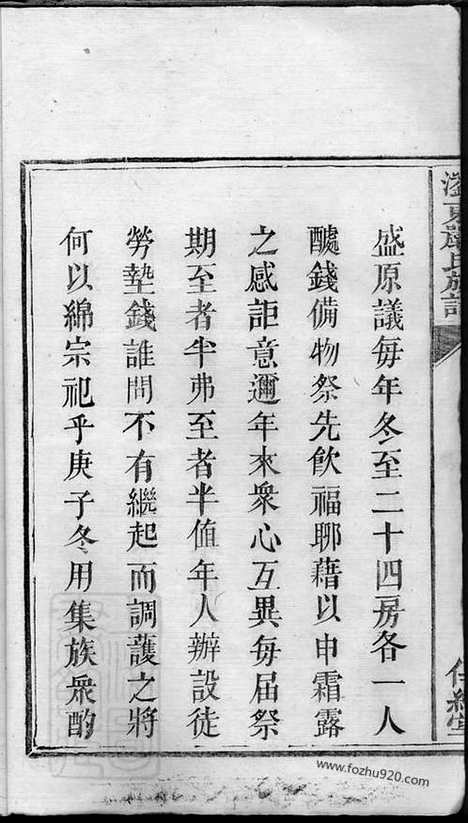 盛原議每年冬至二十四房各一人
醵錢備物祭先飲福聊藉以申霜露
之感詎意邇年來衆心互異每屆祭
期至者半弗至者半值年人辦設徒
勞墊錢誰問不有繼起而調護之將
何以綿宗祀乎庚子冬用集族衆酌
www.fozhu920.com